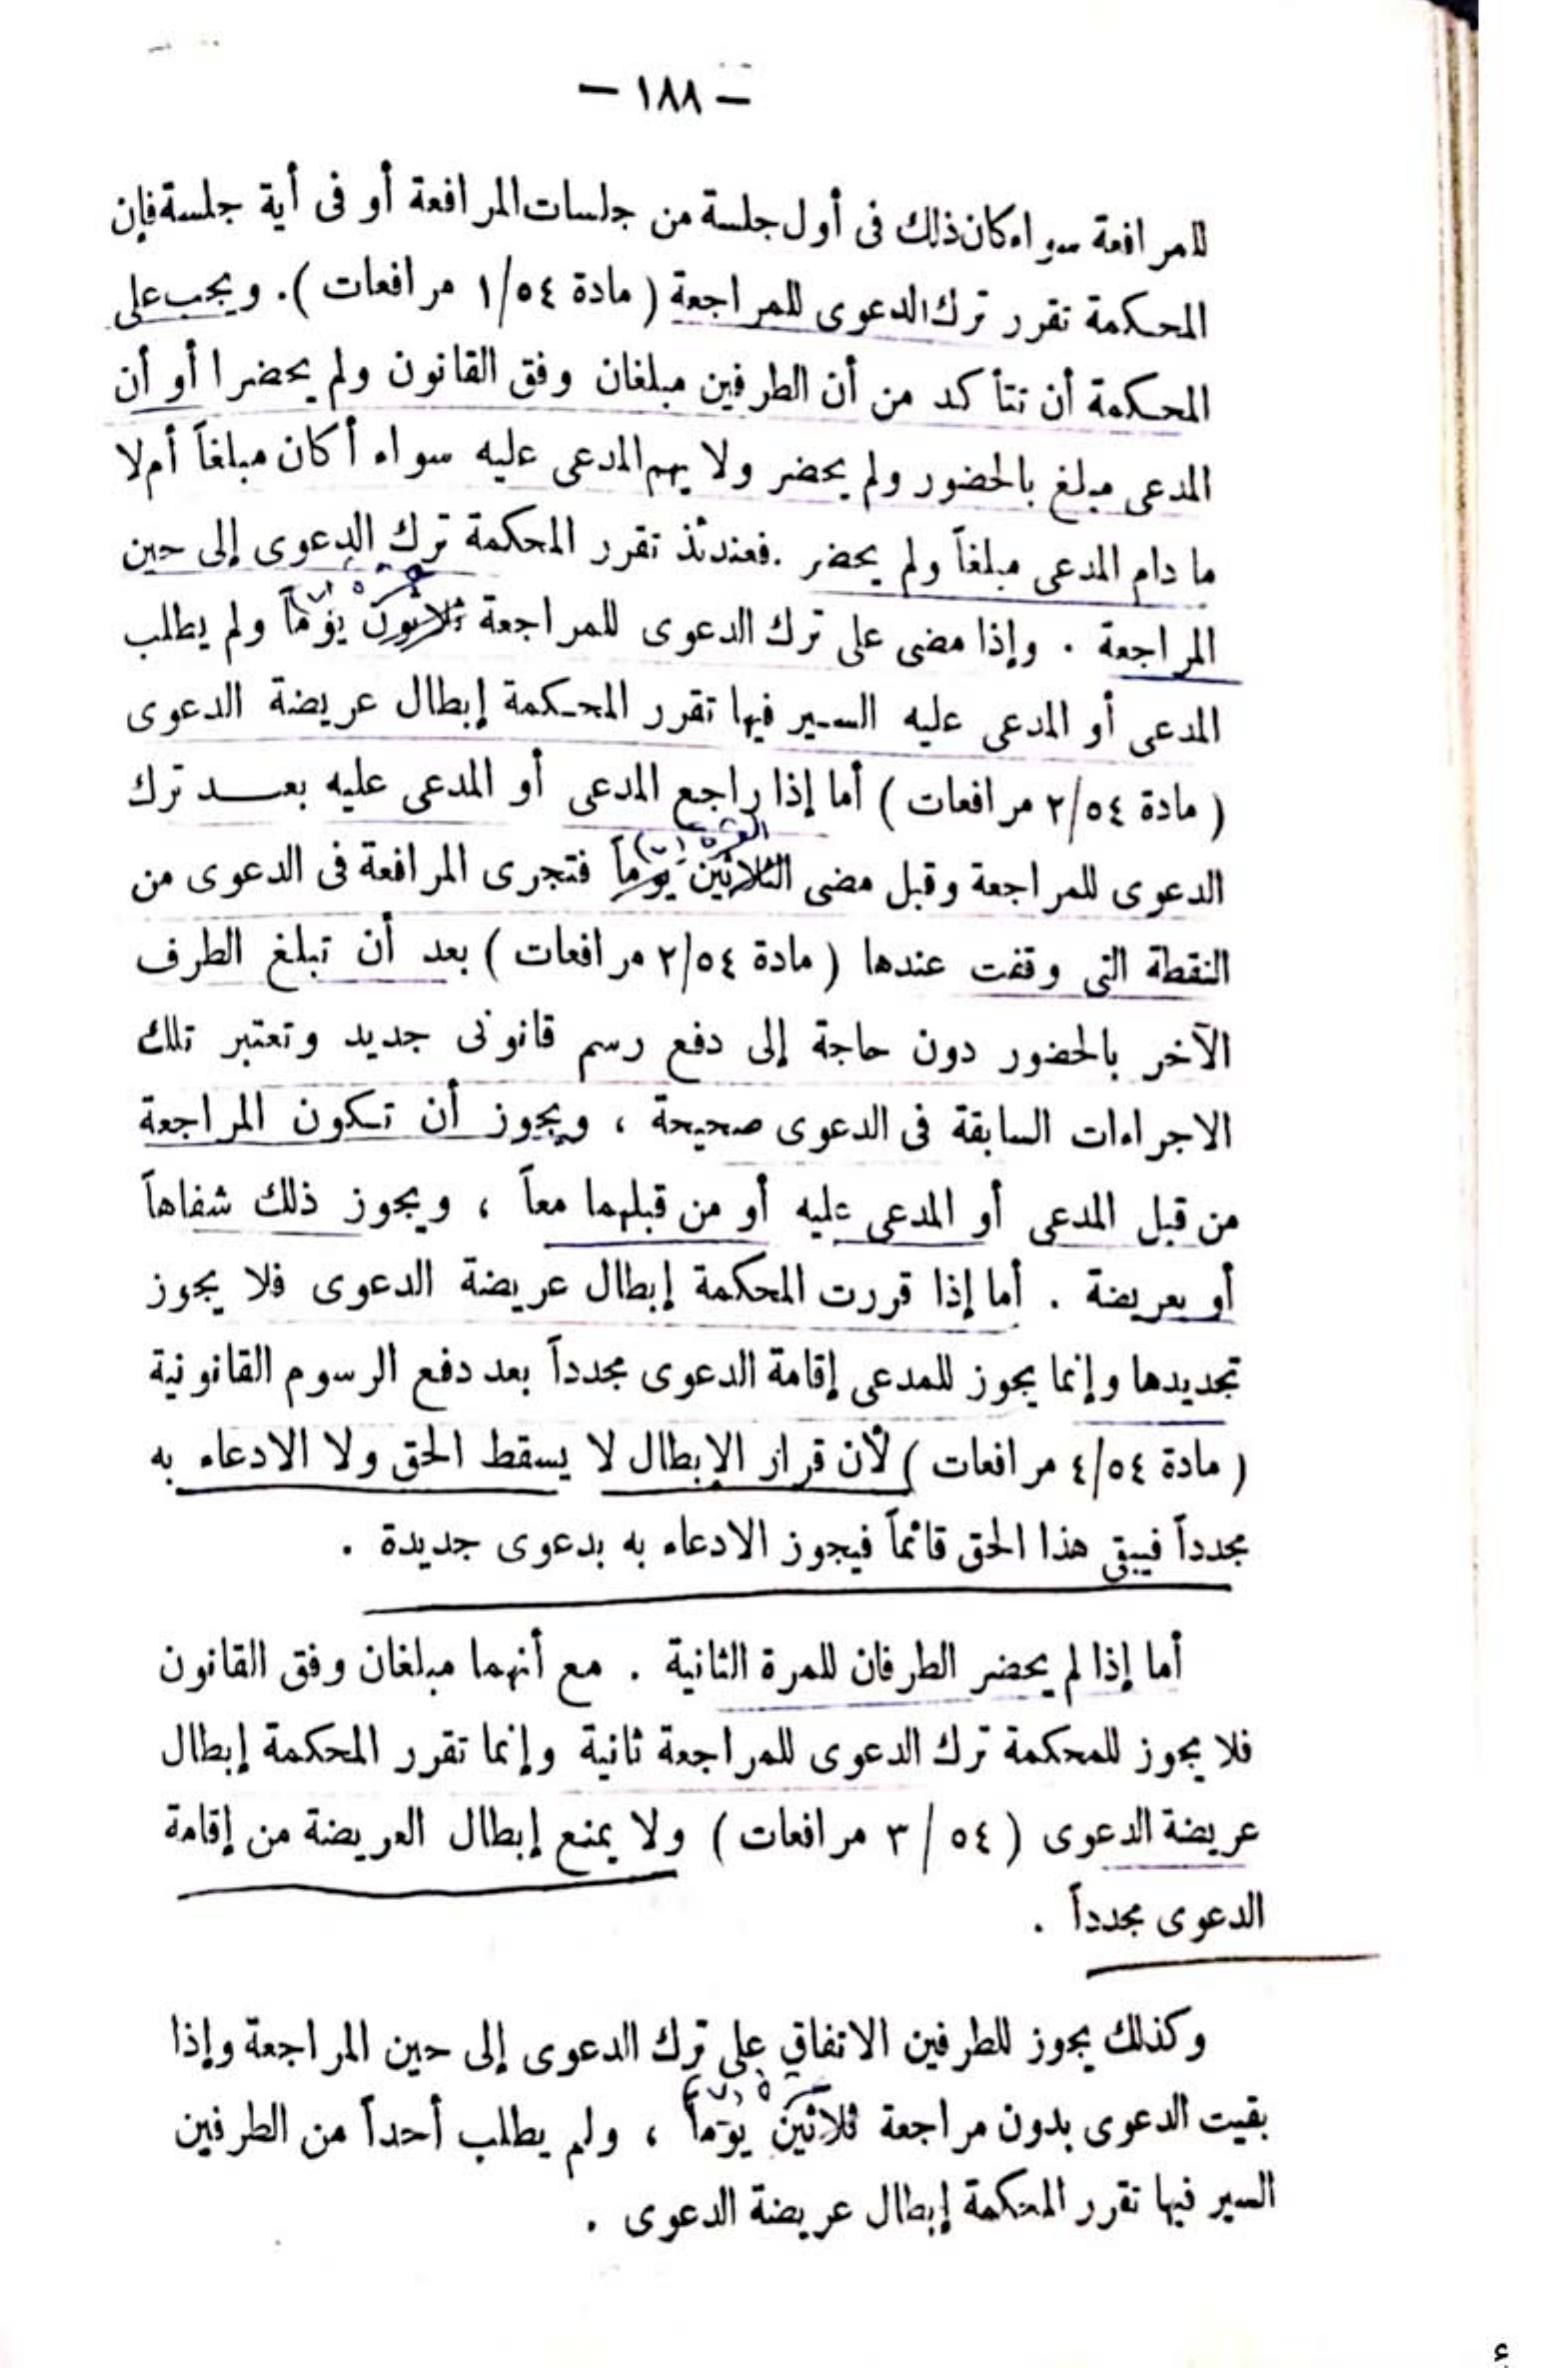 – ١٨٨ –
للمرافعة سواء كان ذلك فى أول جلسة من جلسات المرافعة أو فى أية جلسة فإن
المحكمة تقرر ترك الدعوى للمراجعة ( مادة ١/٥٤ مرافعات ) . ويجب على
المحكمة أن تتأكد من أن الطرفين مبلغان وفق القانون ولم يحضرا أو أن
المدعى مبلغ بالحضور ولم يحضر ولا يهم المدعى عليه سواء أكان مبلغاً أم لا
ما دام المدعى مبلغاً ولم يحضر . فعندئذ تقرر المحكمة ترك الدعوى إلى حين
المراجعة . وإذا مضى على ترك الدعوى للمراجعة ثلاثون يوماً ولم يطلب
المدعى أو المدعى عليه السير فيها تقرر المحكمة إبطال عريضة الدعوى
( مادة ٢/٥٤ مرافعات ) أما إذا راجع المدعى أو المدعى عليه بعد ترك
الدعوى للمراجعة وقبل مضى الثلاثين يوماً فتجرى المرافعة فى الدعوى من
النقطة التى وقفت عندها ( مادة ٢/٥٤ مرافعات ) بعد أن تبلغ الطرف
الآخر بالحضور دون حاجة إلى دفع رسم قانونى جديد وتعتبر تلك
الاجراءات السابقة فى الدعوى صحيحة ، ويجوز أن تكون المراجعة
من قبل المدعى أو المدعى عليه أو من قبلهما معاً ، ويجوز ذلك شفاهاً
أو بعريضة . أما إذا قررت المحكمة إبطال عريضة الدعوى فلا يجوز
تجديدها وإنما يجوز للمدعى إقامة الدعوى مجدداً بعد دفع الرسوم القانونية
( مادة ٤/٥٤ مرافعات ) لأن قرار الإبطال لا يسقط الحق ولا الادعاء به
مجدداً فيبقى هذا الحق قائماً فيجوز الادعاء به بدعوى جديدة .
أما إذا لم يحضر الطرفان للمرة الثانية . مع أنهما مبلغان وفق القانون
فلا يجوز للمحكمة ترك الدعوى للمراجعة ثانية وإنما تقرر المحكمة إبطال
عريضة الدعوى ( ٥٤ / ٣ مرافعات ) ولا يمنع إبطال العريضة من إقامة
الدعوى مجدداً .
وكذلك يجوز للطرفين الاتفاق على ترك الدعوى إلى حين المراجعة وإذا
بقيت الدعوى بدون مراجعة ثلاثين يوماً ، ولم يطلب أحداً من الطرفين
السير فيها تقرر المحكمة إبطال عريضة الدعوى .